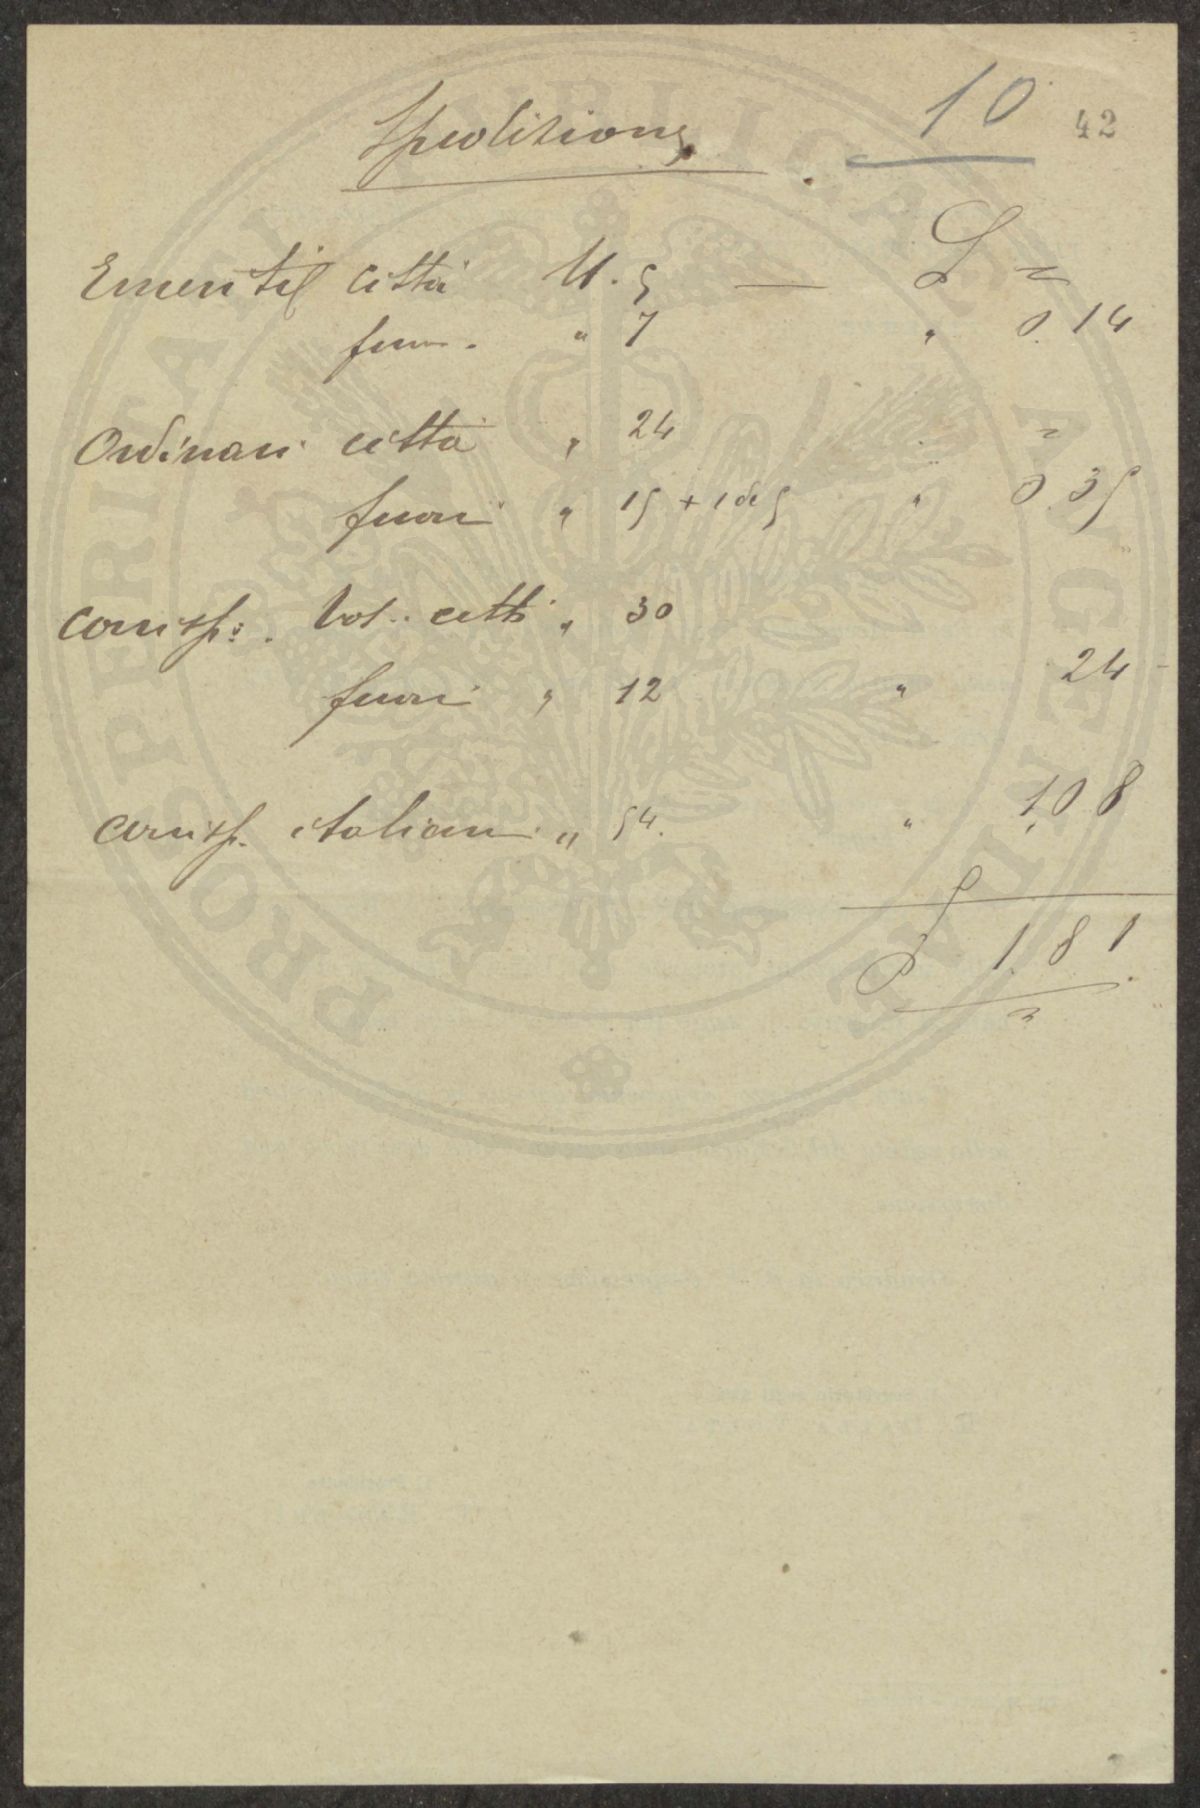 Spedizione 10 42
Emeriti città N. 5 — L =
fuori " 7 " 0.14
Ordinari città " 24 =
fuori " 15 + 1 da 5 " 0.35
Corrisp: Vol. città " 30
fuori " 12 " 24
Corrisp. italiani " 54. " 1,08
L 1.81
PROSPERITATI PUBLICAE AUGENDAE